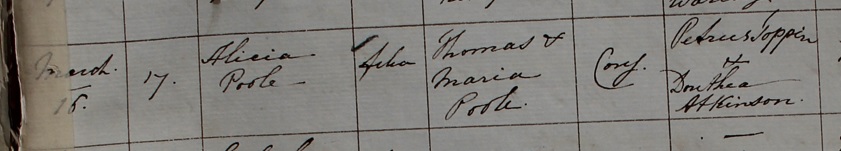 March.
16.
17.
Alicia
Poole
Thomas &
Maria
Poole.
Petrus Toppin
+
Dorothea
Atkinson.